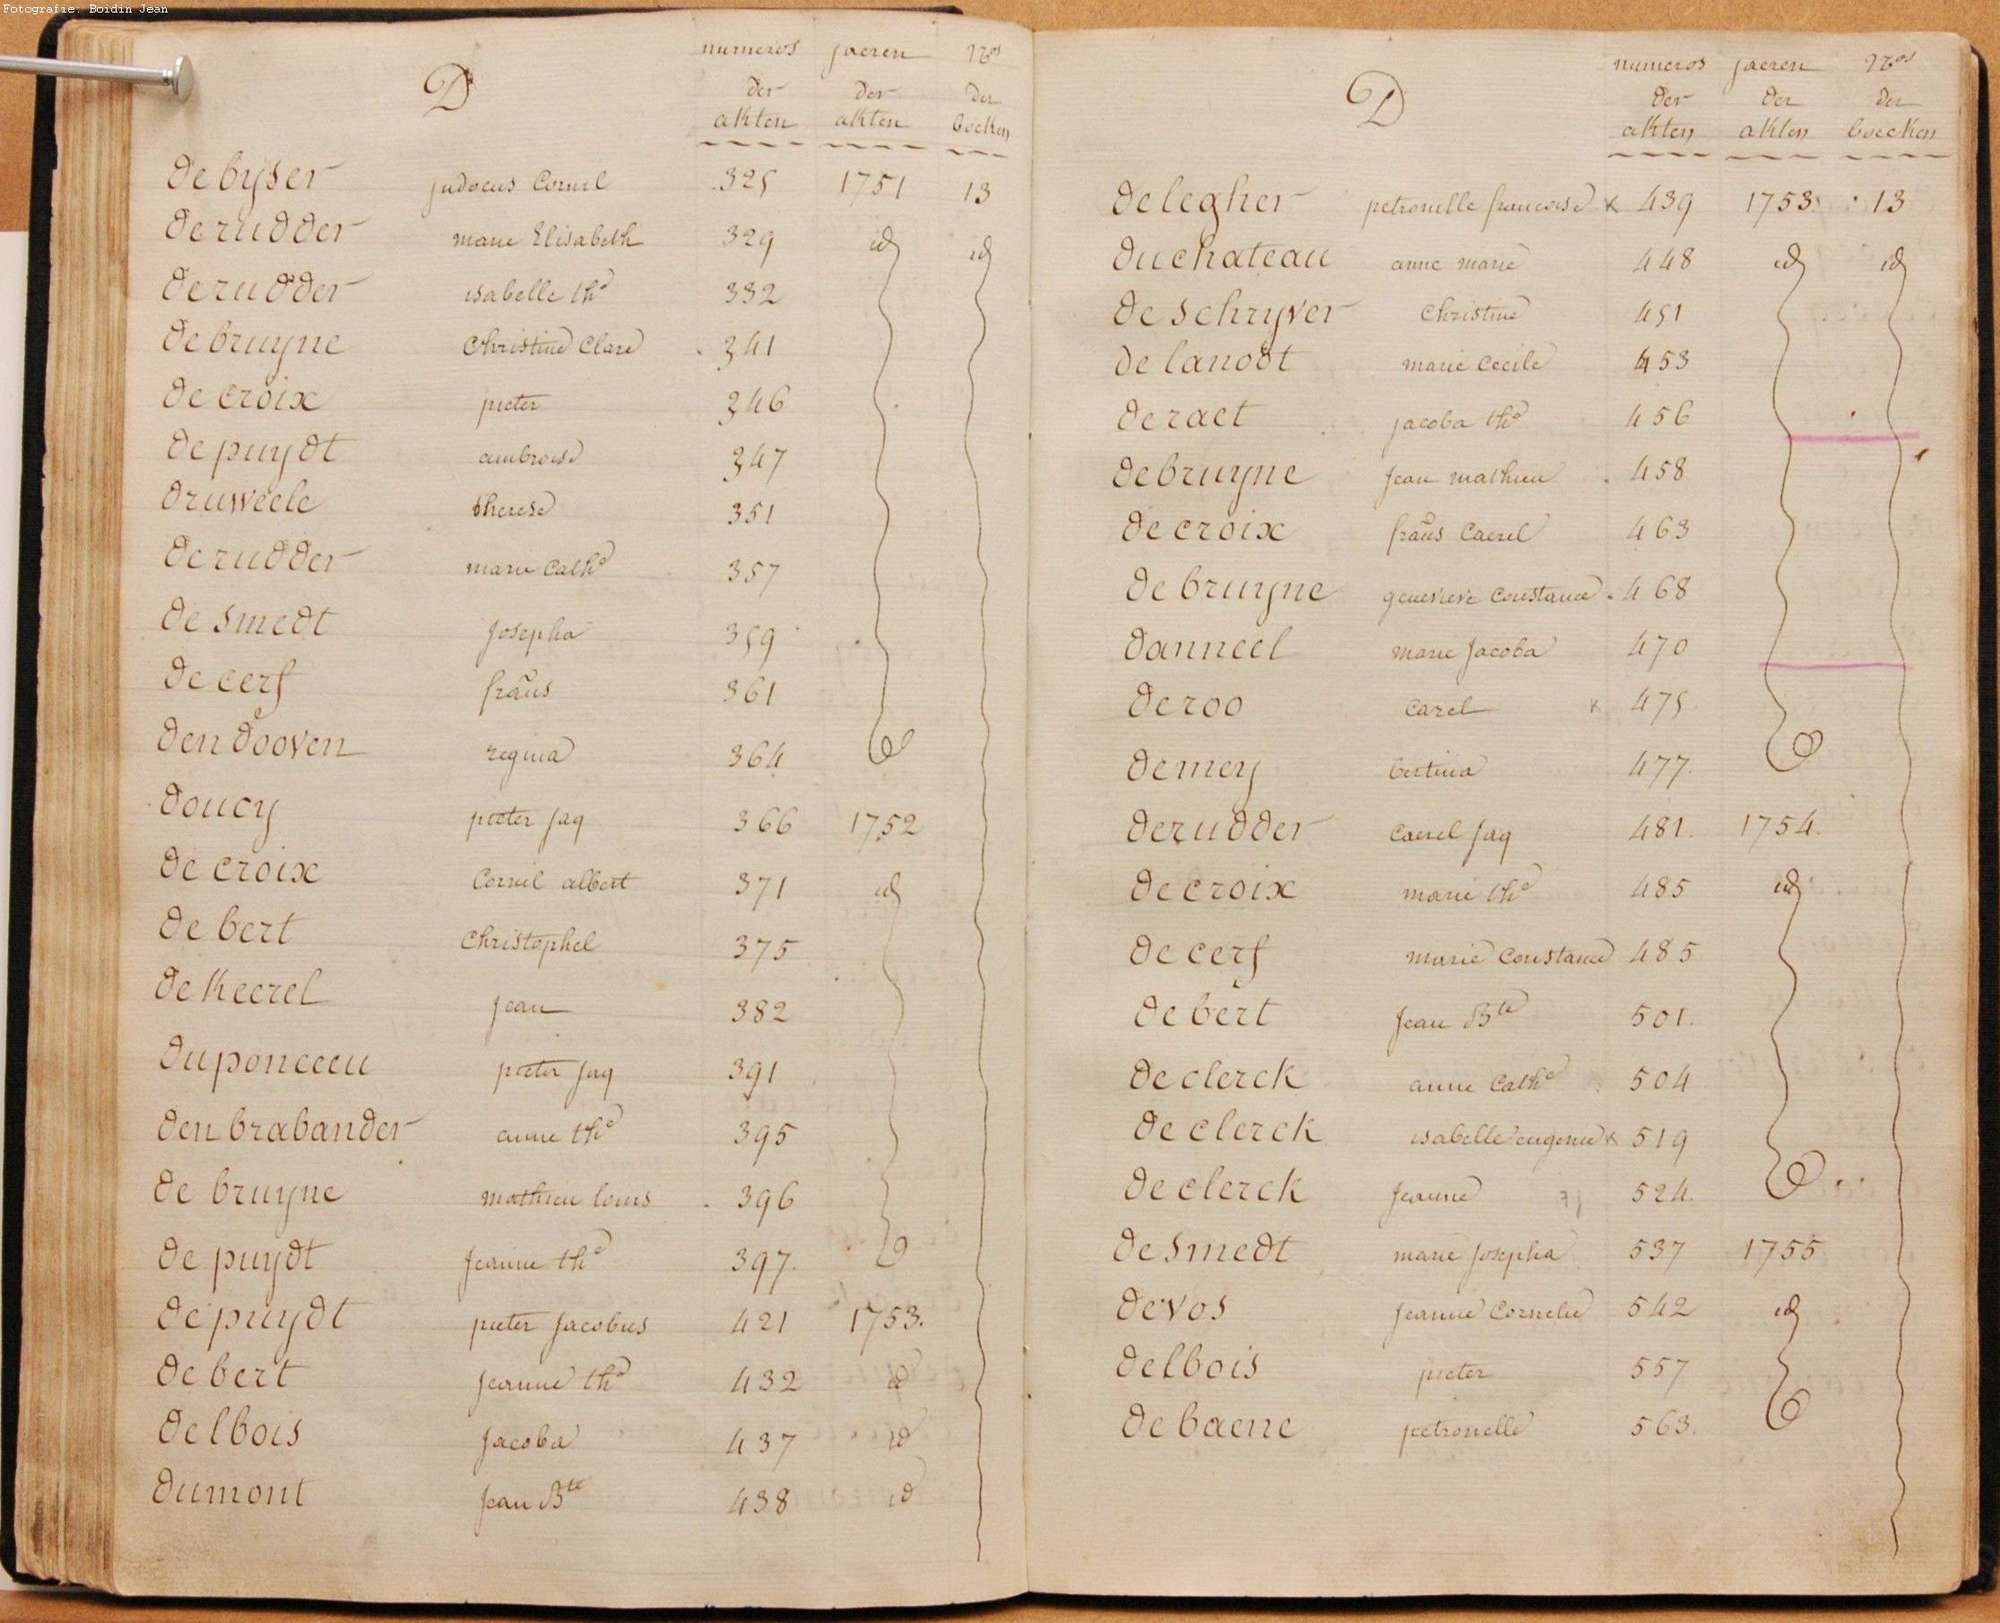 Fotografie: Boidin Jean
D numeros jaeren Nos
der der der
akten akten boeken
de byser judocus Cornil 325 1751 13
de rudder marie Elisabeth 329 id id
de rudder isabelle the 332
de bruyne Christine Clare 341
de croix pieter 346
de puydt ambroise 347
druweele therese 351
de rudder marie Cathe 357
de smedt Josepha 359
de cerf fraus 361
den dooven regina 364
doucy pieter Jaq 366 1752
de croix Cornil albert 371 id
de bert Christophel 375
de Keerel Jean 382
duponceeu pieter Jaq 391
den brabander anne the 395
de bruyne mathieu louis 396
de puydt Jeanne the 397
de puydt pieter Jacobus 421 1753.
de bert Jeanne the 432 id
delbois Jacoba 437 id
dumont Jean Bte 438 id
D numeros jaeren Nos
der der der
akten akten boecken
de legher petronelle francoise x 439 1753 13
duchateau anne marie 448 id id
de schryver Christine 451
de lanodt marie Cecile 453
de raet jacoba the 456
de bruyne Jean mathieu 458
de croix fraus Caerel 463
de bruyne genevieve Constance 468
danneel marie Jacoba 470
de roo Carel x 475
de mey bertina 477.
de rudder Caerel Jaq 481. 1754.
de croix marie the 485 id
de cerf marie Constance 485
de bert Jean Bte 501.
de clerck anne Cathe 504
de clerck isabelle eugenie x 519
de clerck Jeanne 524.
de smedt marie Josepha 537 1755
de vos Jeanne Cornelie 542 id
delbois pieter 557
de baene petronelle 563.